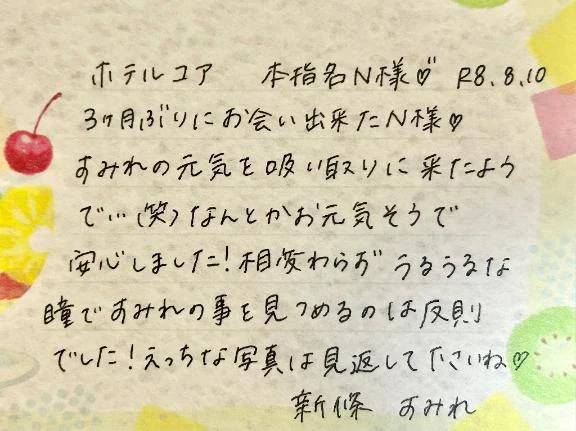 ホテルコア 本指名N様♡ R8.8.10
3ヶ月ぶりにお会い出来たN様♡
すみれの元気を吸い取りに来たよう
で…(笑)なんとかお元気そうで
安心しました!相変わらず うるうるな
瞳ですみれの事を見つめるのは反則
でした!えっちな写真は見返してださいね♡
新條 すみれ